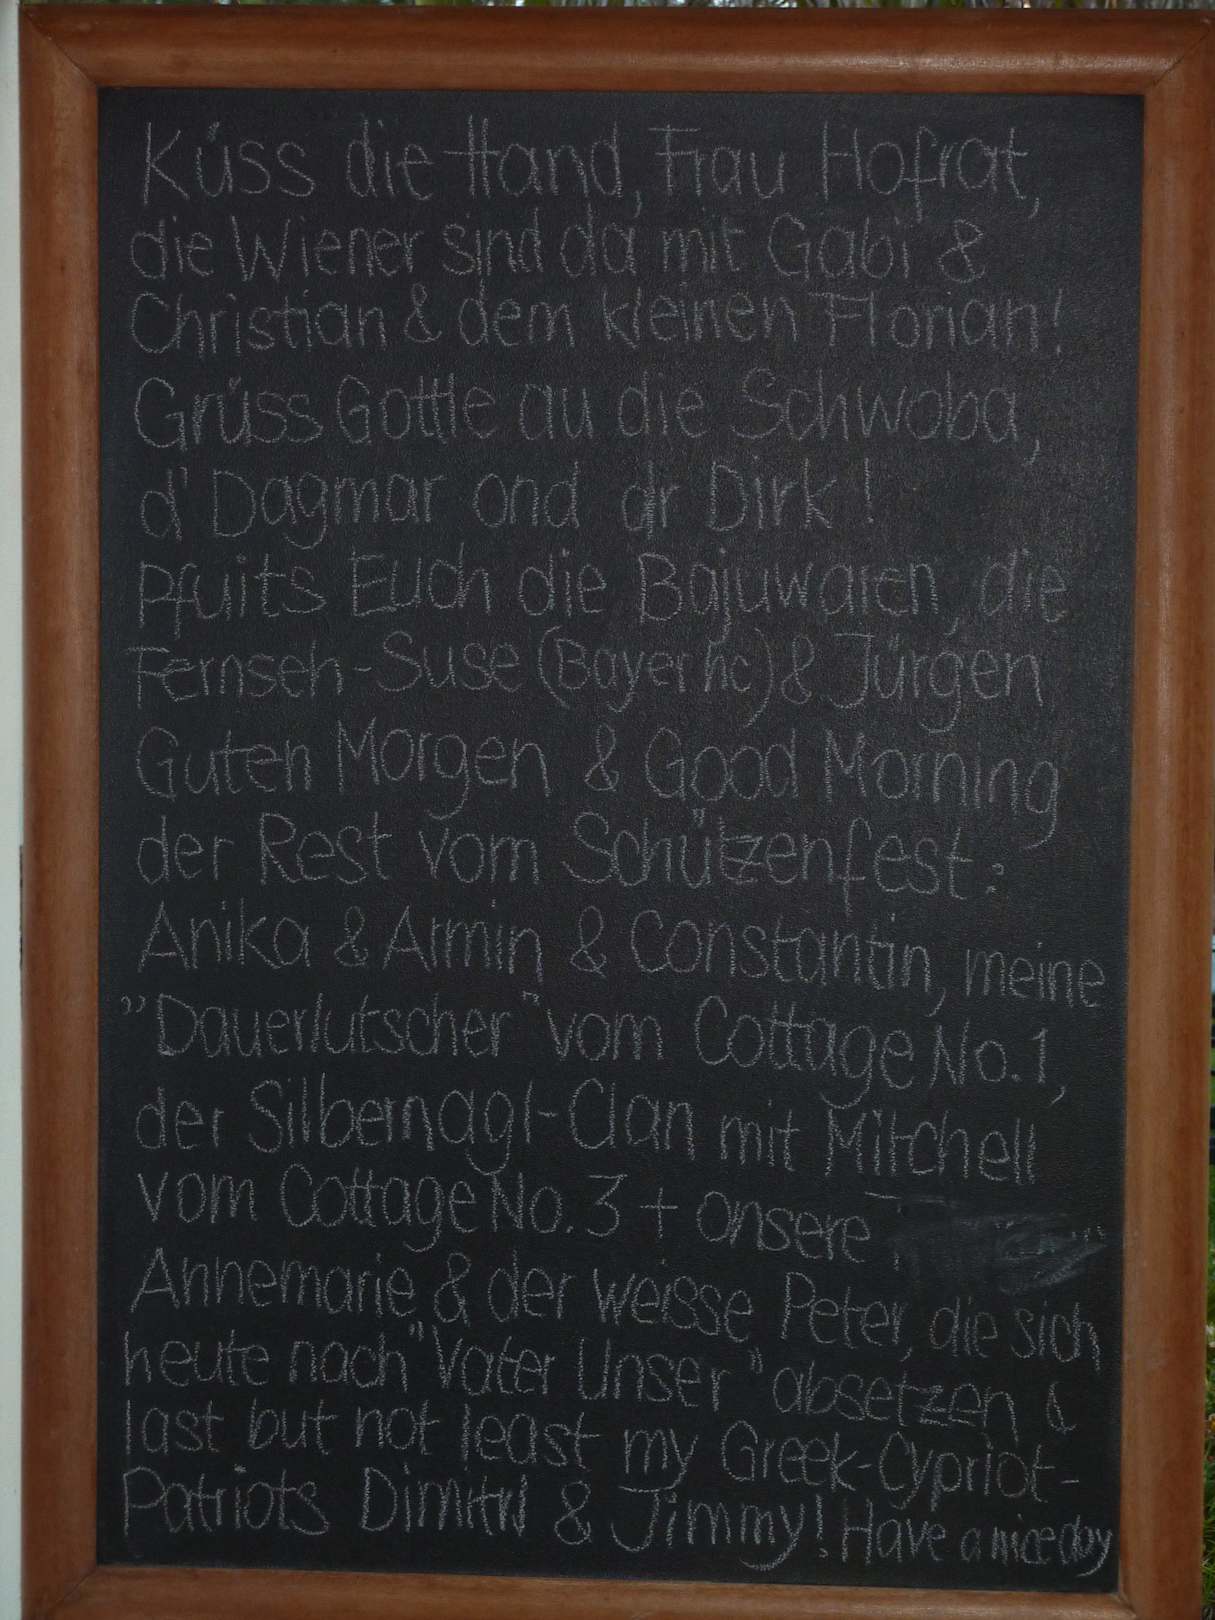 Küss die Hand, Frau Hofrat,
die Wiener sind da mit Gabi &
Christian & dem kleinen Florian!
Grüss Gottle au die Schwoba,
d' Dagmar ond dr Dirk!
Pfuits Euch die Bajuwaren, die
Fernseh-Suse (Bayer hc) & Jürgen
Guten Morgen & Good Morning
der Rest vom Schützenfest:
Anika & Armin & Constantin, meine
"Dauerlutscher" vom Cottage No. 1,
der Silbernagl-Clan mit Mitchell
vom Cottage No. 3 + onsere
Annemarie & der weisse Peter, die sich
heute nach "Vater Unser" absetzen &
last but not least my Greek-Cypriot-
Patriots Dimitri & Jimmy! Have a nice day